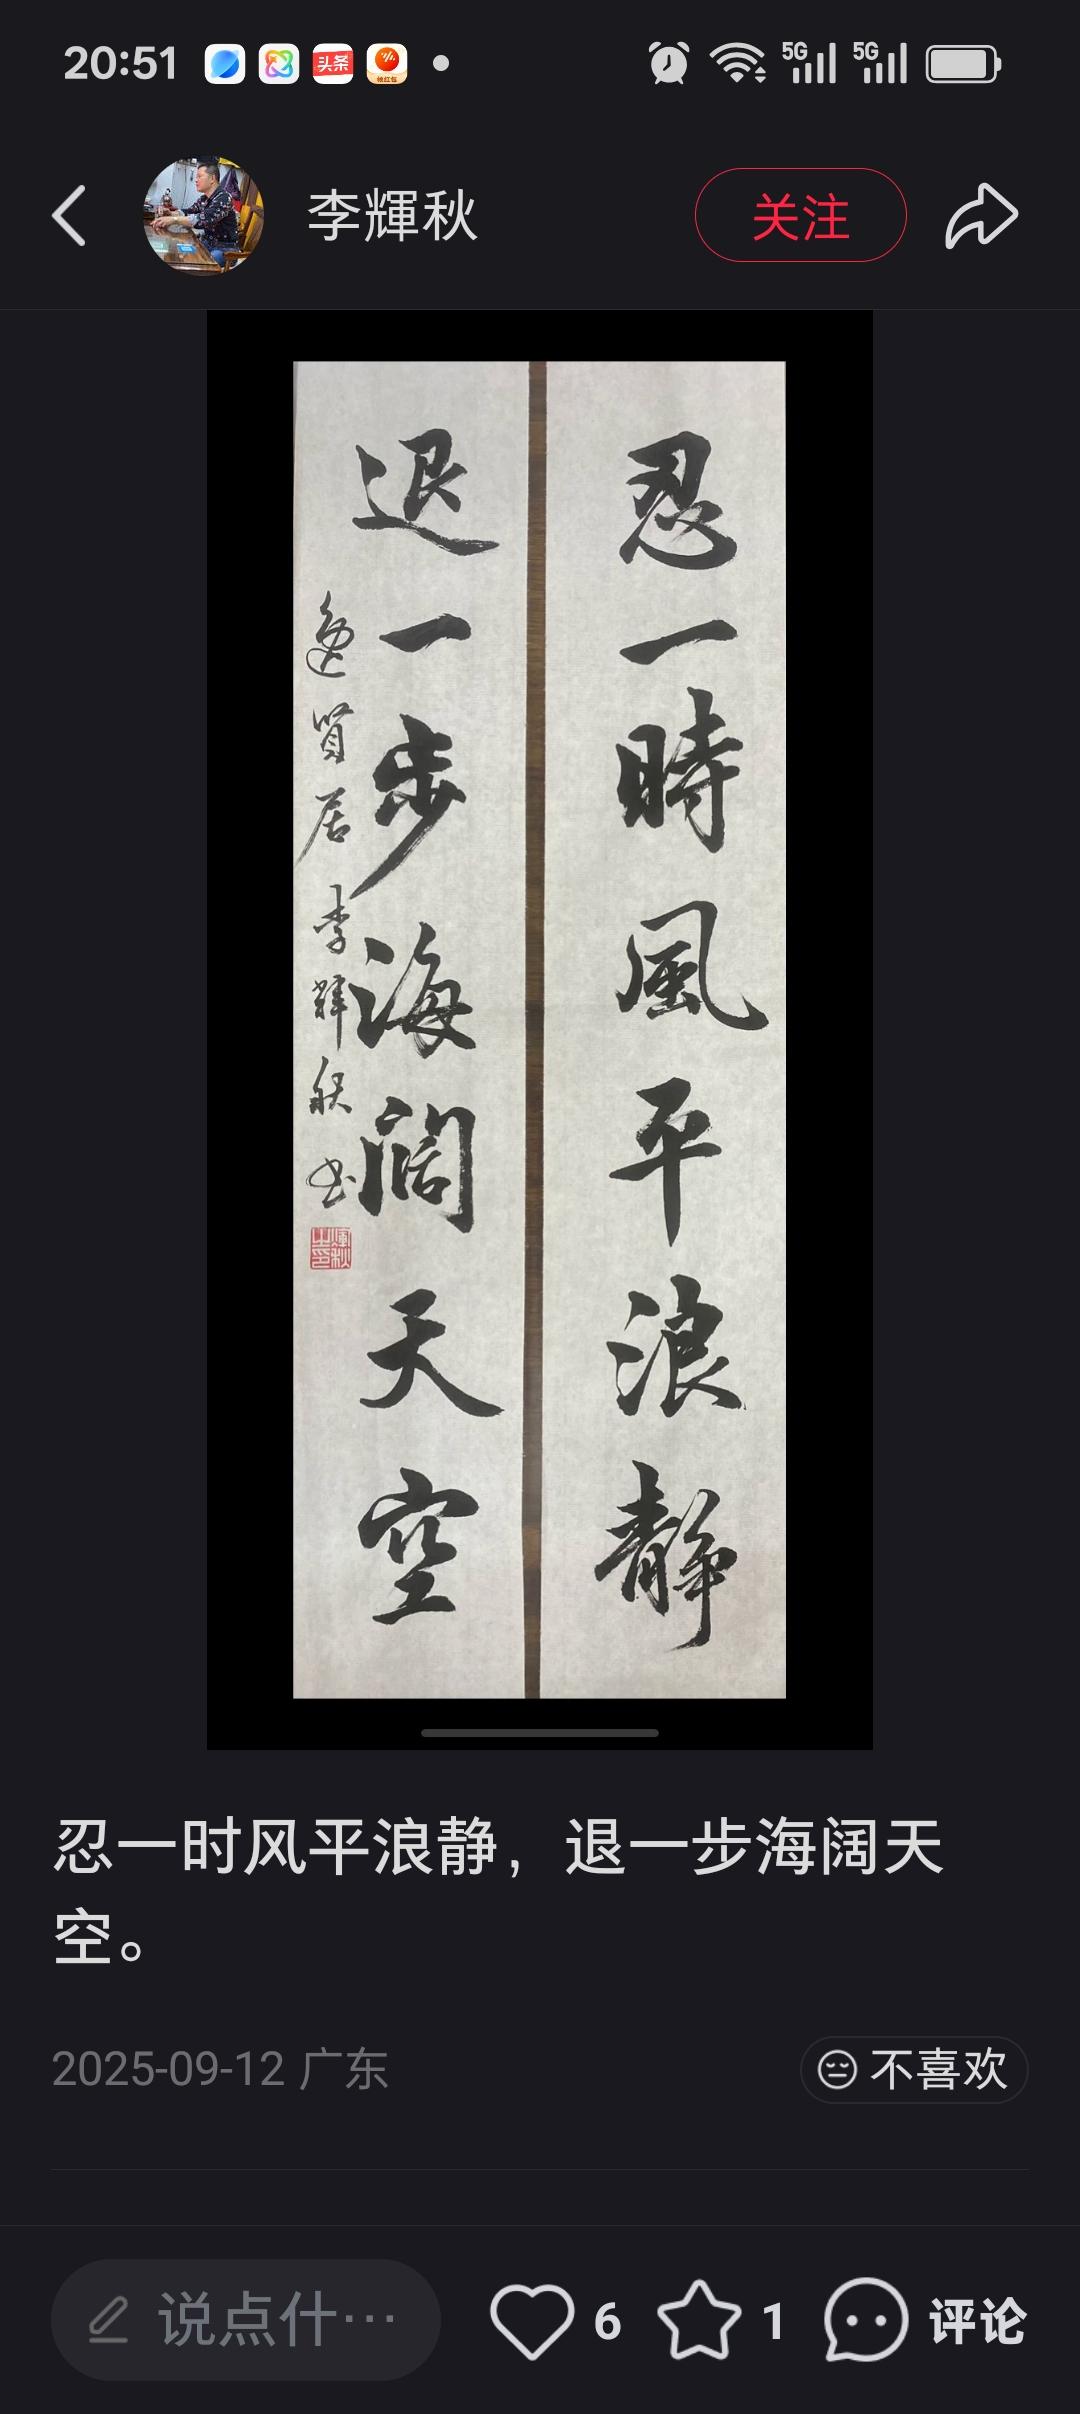 20:51
头条
5G
5G
李輝秋
关注
忍一時風平浪静
退一步海阔天空
逸賢居 李輝秋书
忍一时风平浪静，退一步海阔天
空。
2025-09-12 广东
不喜欢
说点什…
6
1
评论